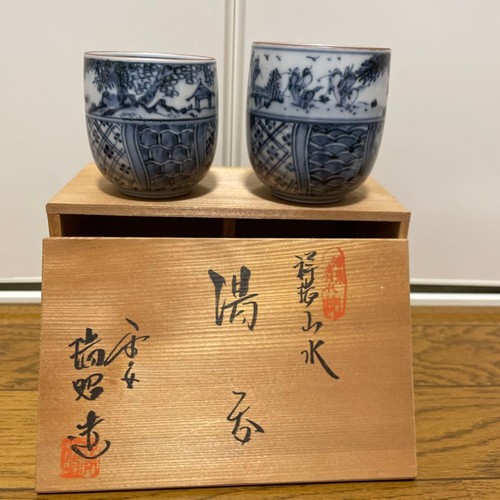 祥瑞山水
湯呑
平安
瑞昭造